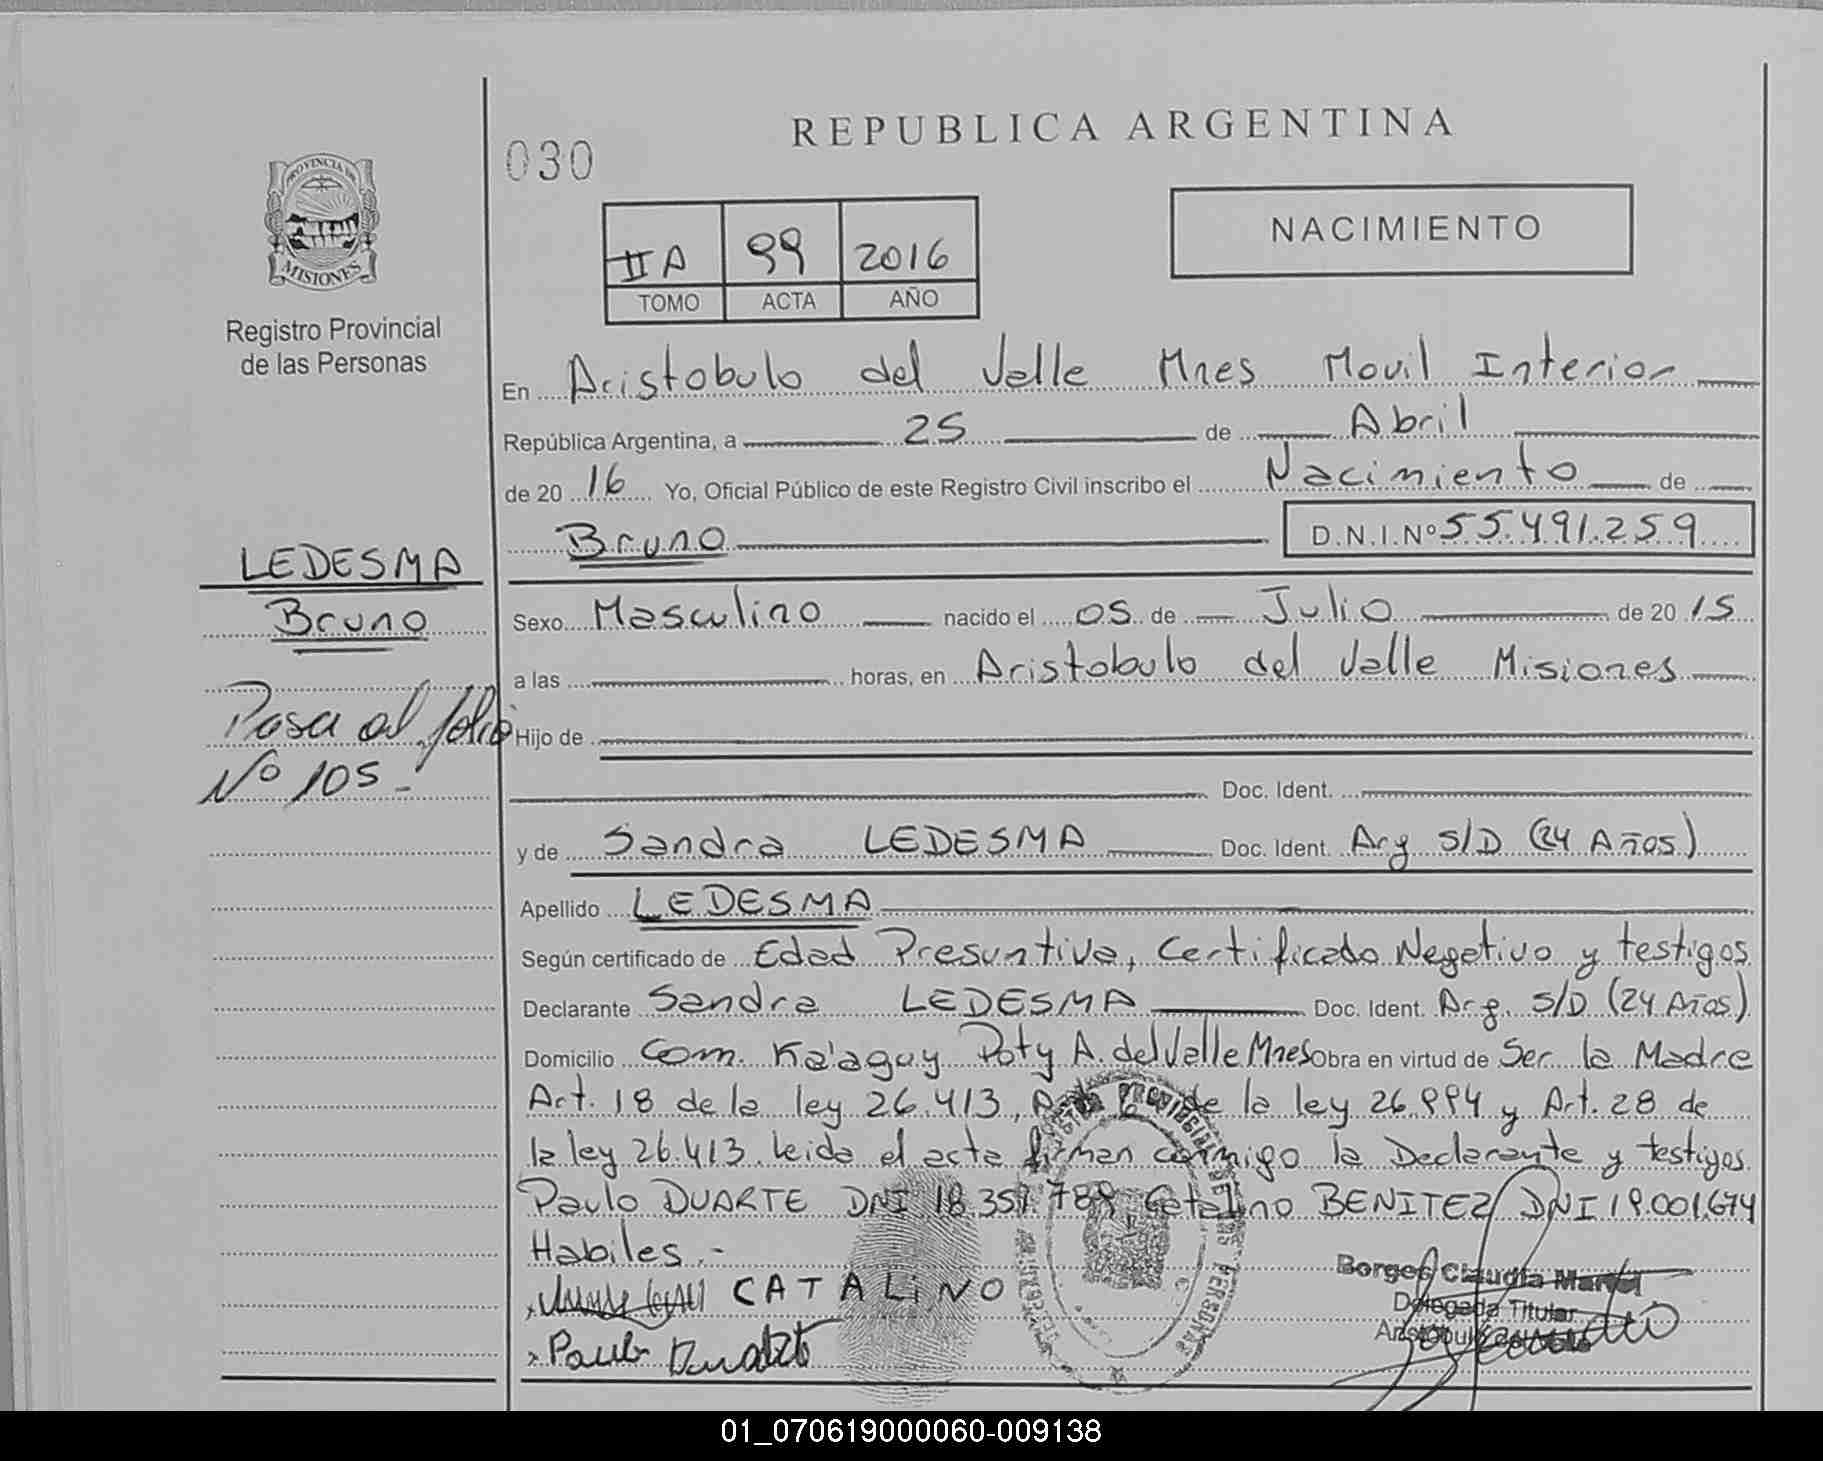 REPUBLICA ARGENTINA
030
PROVINCIA DE
MISIONES
Registro Provincial
de las Personas
NACIMIENTO
IIA 99 2016
TOMO ACTA AÑO
En Aristobulo del Valle Mnes Movil Interior
República Argentina, a 25 de Abril
de 20 16 Yo, Oficial Público de este Registro Civil inscribo el Nacimiento de
Bruno D.N.I.Nº 55.491.259
LEDESMA
Bruno
Pasa al folio
Nº 105.-
Sexo Masculino nacido el 05 de Julio de 20 15
a las horas, en Aristobulo del Valle Misiones
Hijo de
Doc. Ident.
y de Sandra LEDESMA Doc. Ident. Arg S/D (24 Años)
Apellido LEDESMA
Según certificado de Edad Presuntiva, Certificado Negativo y testigos
Declarante Sandra LEDESMA Doc. Ident. Arg. S/D (24 Años)
Domicilio Com. Ka'aguy Poty A. del Valle Mnes Obra en virtud de Ser la Madre
Art. 18 de la ley 26.413, de la ley 26.994 y Art. 28 de
la ley 26.413. Leida el acta firman conmigo la Declarante y testigos
Paulo DUARTE DNI 18.357.789 Catalino BENITEZ DNI 19.001.674
Habiles.-
CATALiNO
Paulo Duarte
Borges Claudia
Delegada Titular
Aristobulo del Valle
01_070619000060-009138